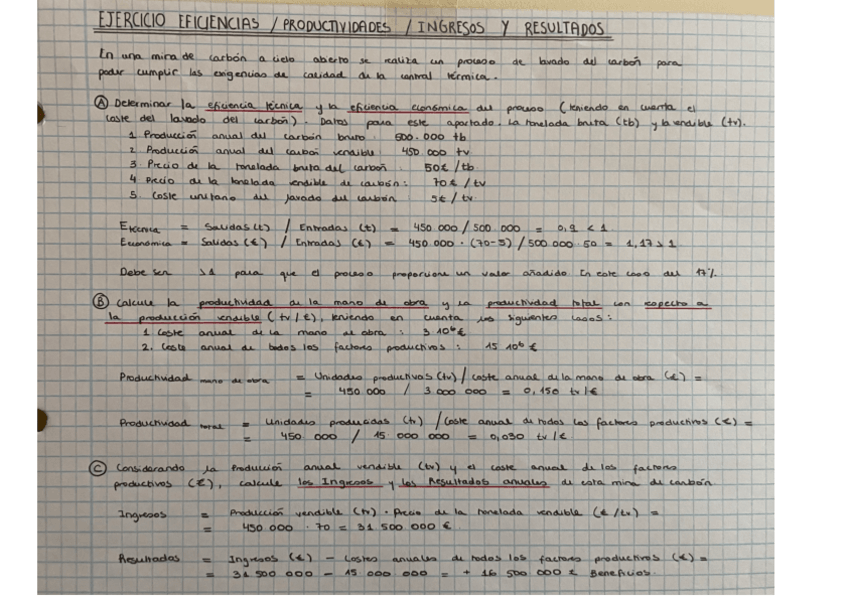 EJERCICIO EFICIENCIAS / PRODUCTIVIDADES / INGRESOS Y RESULTADOS
En una mina de carbón a cielo abierto se realiza un proceso de lavado del carbón para
poder cumplir las exigencias de calidad de la central térmica.
Ⓐ Determinar la eficiencia técnica y la eficiencia económica del proceso (teniendo en cuenta el
coste del lavado del carbón). Datos para este apartado. La tonelada bruta (tb) y la vendible (tv).
1 Producción anual del carbón bruto: 500.000 tb
2 Producción anual del carbón vendible: 450.000 tv
3 Precio de la tonelada bruta del carbón: 50€/tb
4 Precio de la tonelada vendible de carbón: 70€/tv
5. Coste unitario del lavado del carbón 5€/tv
Etécnica = Salidas (t) / Entradas (t) = 450.000 / 500.000 = 0,9 < 1
Económica = Salidas (€) / Entradas (€) = 450.000 · (70-5) / 500.000 · 50 = 1,17 > 1
Debe ser >1 para que el proceso proporcione un valor añadido. En este caso del 17%.
Ⓑ Calcule la productividad de la mano de obra y la productividad total con respecto a
la producción vendible (tv/€), teniendo en cuenta los siguientes casos:
1 Coste anual de la mano de obra: 3 10⁶ €
2. Coste anual de todos los factores productivos: 15 10⁶ €
Productividad mano de obra = Unidades productivas (tv) / coste anual de la mano de obra (€) =
= 450.000 / 3 000 000 = 0,150 tv/€
Productividad total = Unidades producidas (tv) / Coste anual de todos los factores productivos (€) =
= 450.000 / 15 000 000 = 0,030 tv/€
Ⓒ Considerando la Producción anual vendible (tv) y el coste anual de los factores
productivos (€), calcule los Ingresos y los Resultados anuales de esta mina de carbón
Ingresos = Producción vendible (tv) · Precio de la tonelada vendible (€/tv) =
= 450 000 · 70 = 31 500 000 €
Resultados = Ingresos (€) - Costes anuales de todos los factores productivos (€) =
= 31 500 000 - 15 000 000 = + 16 500 000 € Beneficios.